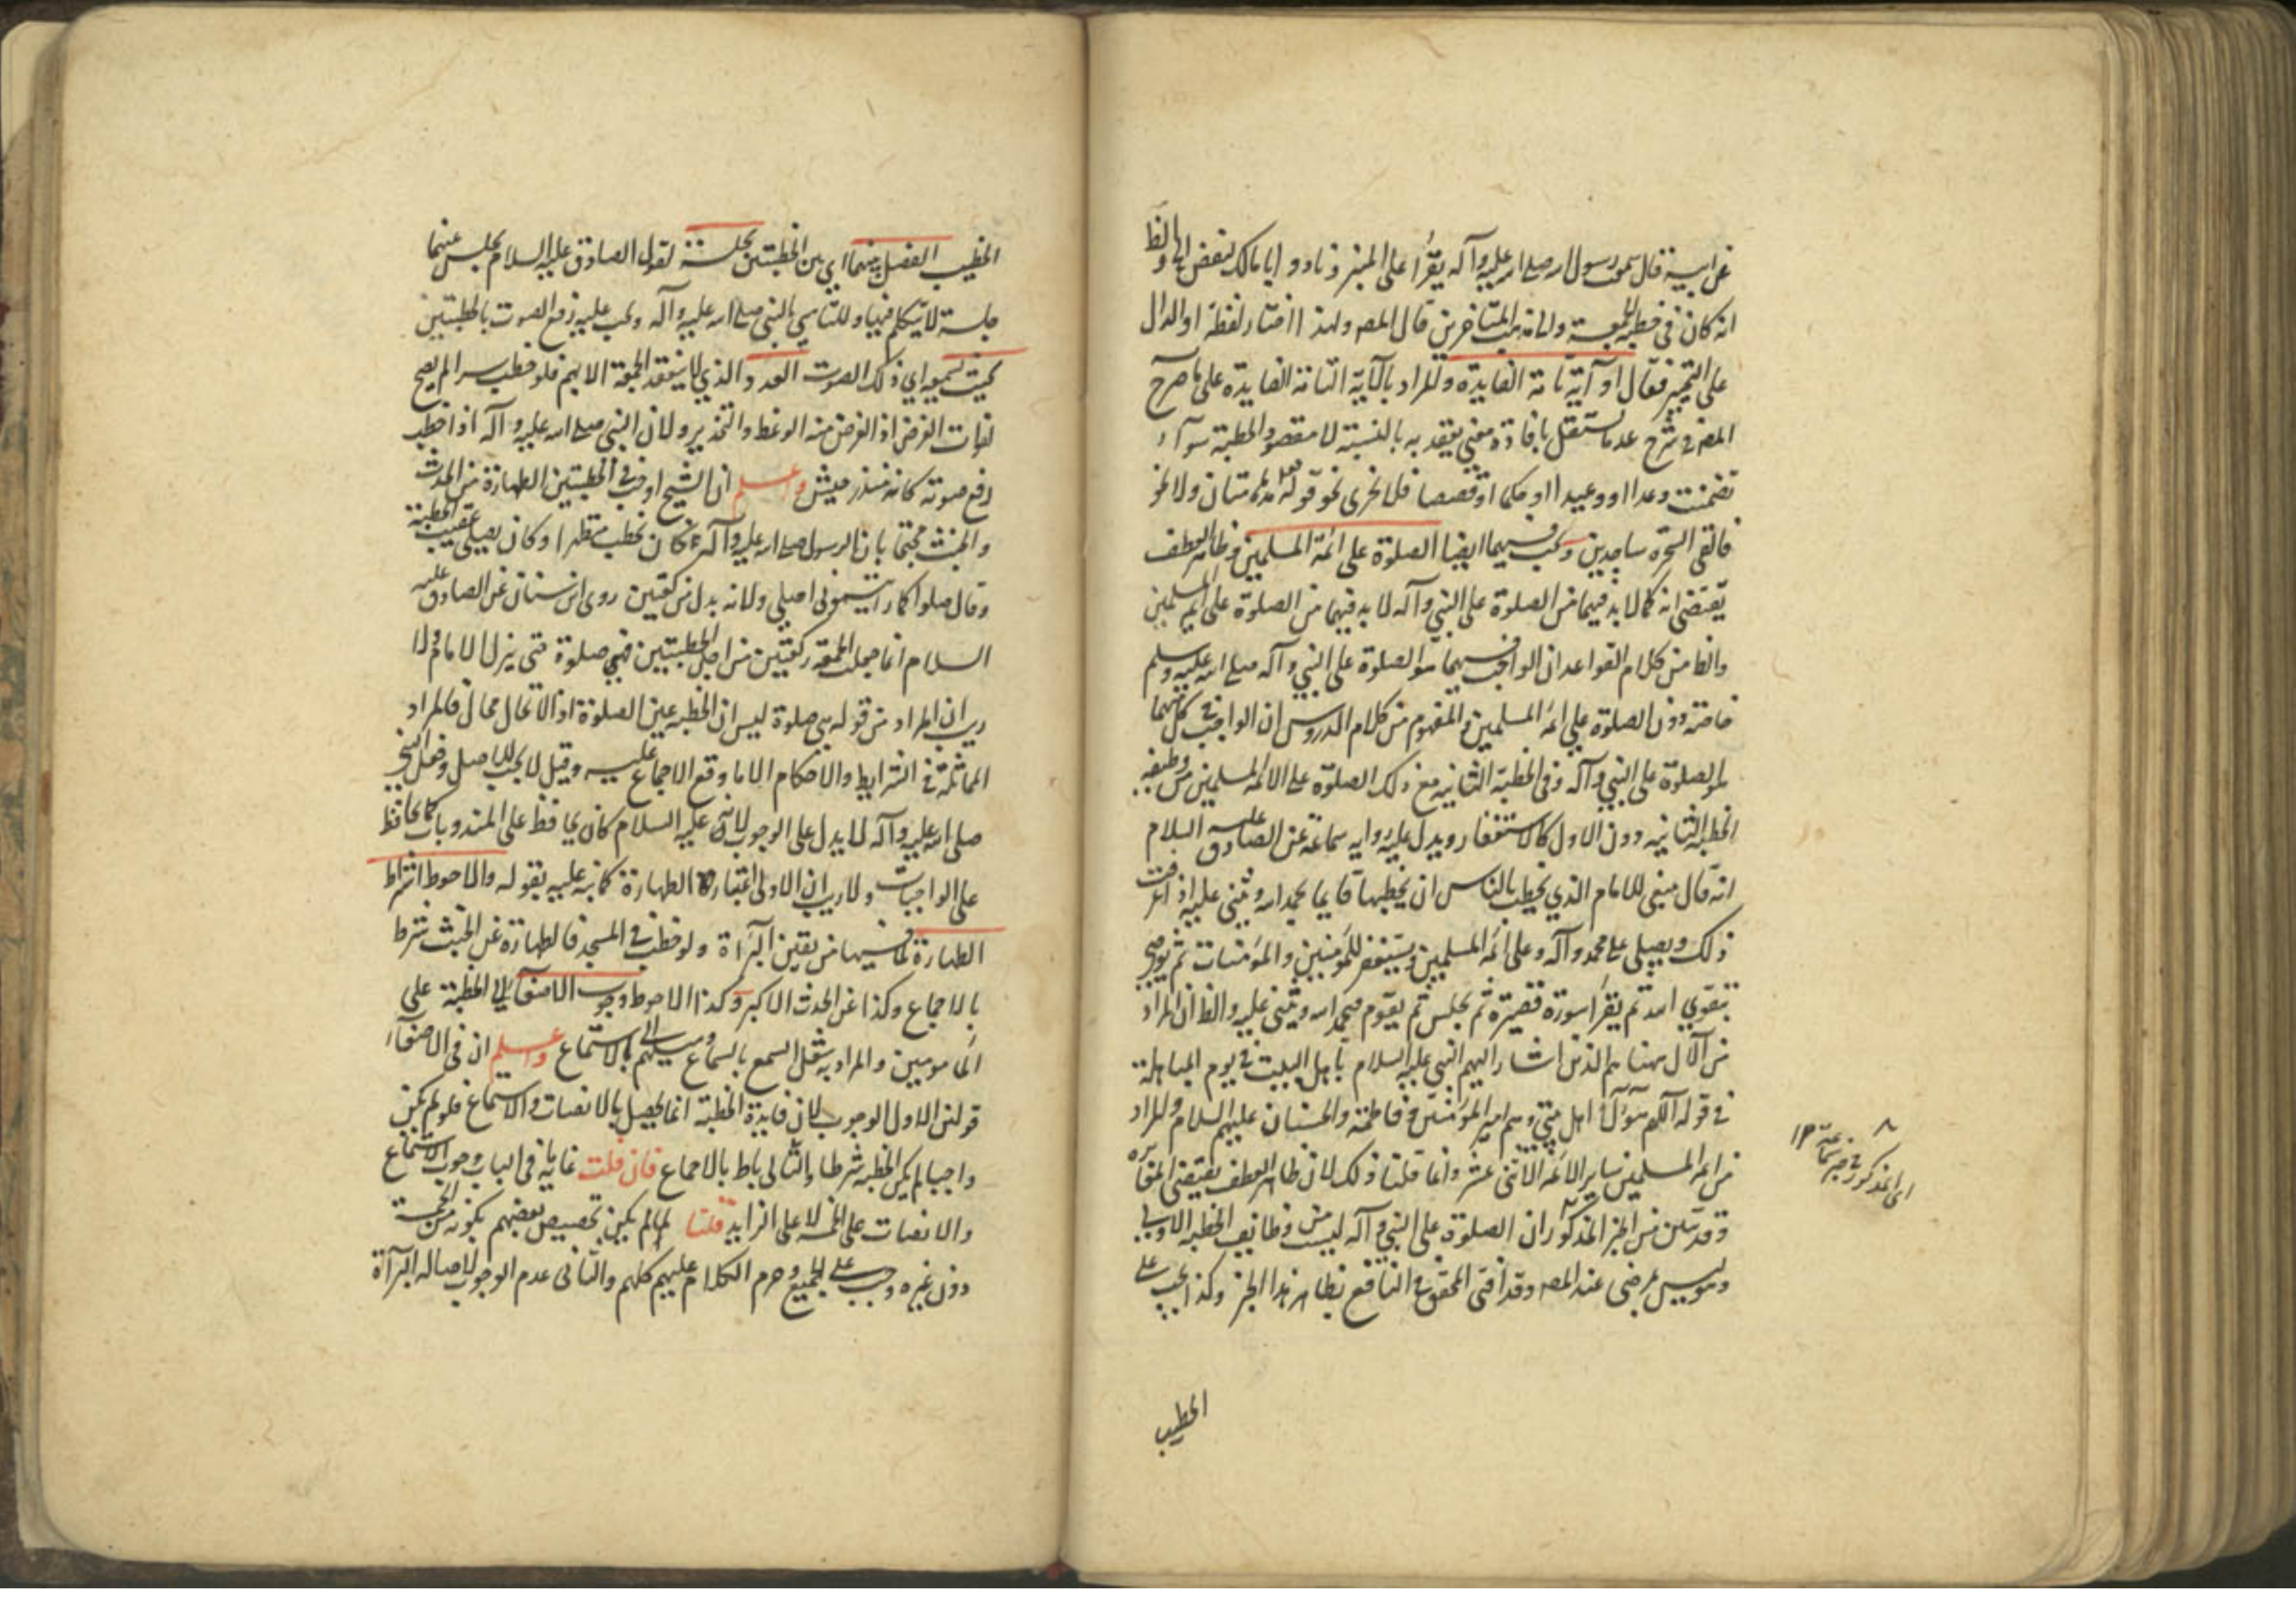 عن ابيه قال سمعت رسول الله صلى الله عليه وآله يقرأ على المنبر ونادوا يا مالك ليقض والظ
انه كان في خطبة الجمعة ولانه من المتأخرين قال المصه ولهذا اختار لفظة او الدال
على التخيير فقال او آية تامة الفايدة والمراد بالآية التامة الفايدة على ما صرح
المصه في شرح عد ما يستقل بافادة معنى يعتد به بالنسبة لا مقصود الخطبة سوآء
تضمنت وعدا او وعيدا او حكما او قصصا فلا يجزى نحو قوله تع مدهامتان ولا نحو
فالقى السحرة ساجدين وتجب فيهما ايضا الصلوة على ائمة المسلمين وظاهر العطف
يقتضى انه كما لا بد فيهما من الصلوة على النبي وآله لا بد فيهما من الصلوة على ائمة المسلمين
والظ من كلام القواعد ان الواجب فيهما هو الصلوة على النبي وآله صلى الله عليه وسلم
خاصة دون الصلوة على ائمة المسلمين والمفهوم من كلام الدروس ان الواجب في كل منهما
هو الصلوة على النبي وآله وفي الخطبة الثانيه مع ذلك الصلوة على الائمة المسلمين من وظيفه
الخطبه الثانيه دون الاول كالاستغفار ويدل عليه روايه سماعة عن الصادق عليه السلام
انه قال ينبغي للامام الذي يخطب بالناس ان يخطبها قايما يحمد الله ويثني عليه اذ اعرفت
ذلك ويصلي على محمد وآله وعلى ائمة المسلمين ويستغفر للمؤمنين والمؤمنات ثم يوصي
بتقوى الله ثم يقرأ سورة قصيرة ثم يجلس ثم يقوم فيحمد الله ويثني عليه والظ ان المراد
من الآل ههنا هم الذين اشار اليهم النبي عليه السلام باهل البيت في يوم المباهلة
في قوله اللهم هؤلآء اهل بيتي وهم امير المؤمنين وفاطمة والحسنان عليهم السلام والمراد
من ائمة المسلمين ساير الائمة الاثنى عشر وانما قلنا ذلك لان ظاهر العطف يقتضى المغايره
وقد تبين من الخبر المذكور ان الصلوة على النبي وآله ليست من وظايف الخطبه الاولى
وهو ليس بمرضى عند المصه وقد افتى المحقق في النافع بظاهر هذا الخبر وكذا يجب على
الخطيب
اى المذكور في خبر سماعة ١٢
الخطيب الفصل بينهما اي بين الخطبتين بجلسة لقول الصادق عليه السلام يجلس بينهما
جلسة لا يتكلم فيها وللتأسي بالنبي صلى الله عليه وآله ويجب عليه رفع الصوت بالخطبتين
بحيث يسمعه اي ذلك الصوت العدد الذي لا ينعقد الجمعة الا بهم فلو خطب سرا لم يصح
لفوات الغرض اذ الغرض منه الوعظ والتحذير ولان النبي صلى الله عليه وآله اذا خطب
رفع صوته كانه منذر جيش واعلم ان الشيخ اوجب في الخطبتين الطهارة من الحدث
والخبث محتجا بان الرسول صلى الله عليه وآله كان يخطب متطهرا وكان يصلي عقيب الخطبة
وقال صلوا كما رأيتموني اصلي ولانه بدل من ركعتين روى ابن سنان عن الصادق عليه
السلام انما جعلت الجمعة ركعتين من اجل الخطبتين فهي صلوة حتى ينزل الامام ولا
ريب ان المراد من قوله هي صلوة ليس ان الخطبه عين الصلوة اذ الاتحال محال فالمراد
المماثلة في الشرايط والاحكام الا ما وقع الاجماع عليه وقيل لا يجب للاصل وفعل النبي
صلى الله عليه وآله لا يدل على الوجوب لانه عليه السلام كان يحافظ على المندوبات كما يحافظ
على الواجبات ولا ريب ان الاولى اعتبار الطهارة كما نبه عليه بقوله والاحوط اشتراط
الطهارة فيهما لما فيها من يقين البرآءة ولو خطب في المسجد فالطهارة عن الخبث شرط
بالاجماع وكذا عن الحدث الاكبر وكذا الاحوط وجوب الاصغآء الى الخطبة على
المأمومين والمراد به ثقل السمع بالسماع وميلهم الى الاستماع واعلم ان في الاصغآء
قولين الاول الوجوب لان فايدة الخطبة انما يحصل بالانصات والاستماع فلو لم يكن
واجبا لم يكن الخطبة شرطا والتالي باطل بالاجماع فان قلت غايته في الباب وجوب الاستماع
والانصات على الخمسة لا على الزايد قلنا لما لم يكن تخصيص بعضهم بكونه من الخمسة
دون غيره وجب على الجميع وحرم الكلام عليهم كلهم والثانى عدم الوجوب لاصالة البرآءة